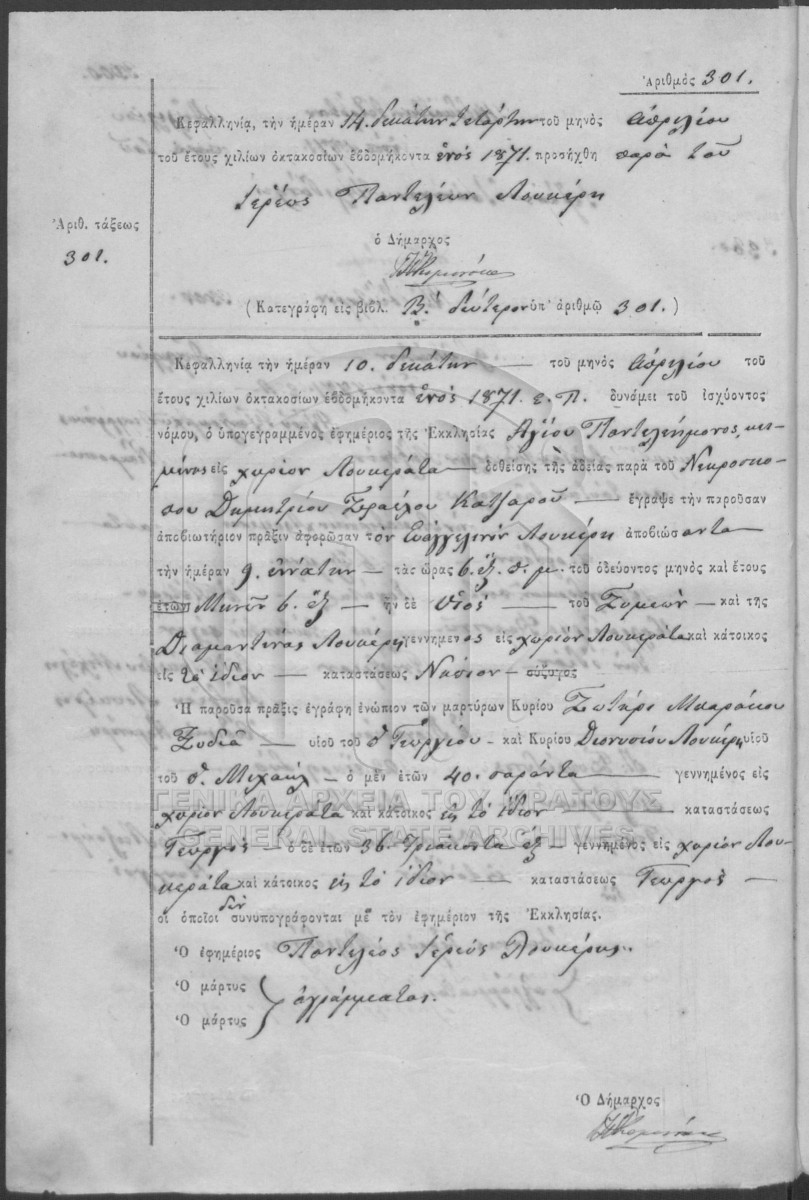 Ἀριθμὸς 301.
Κεφαλληνίᾳ, τὴν ἡμέραν 14 δεκάτην τετάρτην τοῦ μηνὸς Ἀπριλίου
τοῦ ἔτους χιλίων ὀκτακοσίων ἑβδομήκοντα ἑνός 1871. προσήχθη παρὰ τοῦ
Ἱερέως Παντελέων Λουκέρη
Ἀριθ. τάξεως
301.
ὁ Δήμαρχος
(Κατεγράφη εἰς βιβλ. Β. δεύτερον ὑπ' ἀριθμῷ 301.)
Κεφαλληνίᾳ τὴν ἡμέραν 10. δεκάτην τοῦ μηνὸς Ἀπριλίου τοῦ
ἔτους χιλίων ὀκτακοσίων ἑβδομήκοντα ἑνός 1871. ε. π. δυνάμει τοῦ ἰσχύοντος
νόμου, ὁ ὑπογεγραμμένος ἐφημέριος τῆς Ἐκκλησίας Ἁγίου Παντελεήμονος, κει-
μένης εἰς χωρίον Λουκεράτα δοθείσης τῆς ἀδείας παρὰ τοῦ Νεκροσκό-
που Δημητρίου Κατζαροῦ ἔγραψε τὴν παροῦσαν
ἀποβιωτήριον πρᾶξιν ἀφορῶσαν τὸν Εὐαγγελινὸν Λουκέρη ἀποβιώσαντα
τὴν ἡμέραν 9. ἐννάτην τὰς ὥρας 6. ἕξ π. μ. τοῦ ὁδεύοντος μηνὸς καὶ ἔτους
ἐτῶν Μηνῶν 6. ἕξ ἦν δὲ υἱὸς τοῦ Συμεὼν καὶ τῆς
Διαμαντίνας Λουκέρη, γεννημένος εἰς χωρίον Λουκεράτα καὶ κάτοικος
εἰς τὸ ἴδιον καταστάσεως Νήπιον σύζυγος
Ἡ παροῦσα πρᾶξις ἐγράφη ἐνώπιον τῶν μαρτύρων Κυρίου Σωτήρι Μπαράκου
Ξυδιᾶ υἱοῦ τοῦ π. Γεωργίου καὶ Κυρίου Διονυσίου Λουκέρη υἱοῦ
τοῦ π. Μιχαὴλ ὁ μὲν ἐτῶν 40. σαράντα γεννημένος εἰς
χωρίον Λουκεράτα καὶ κάτοικος εἰς τὸ ἴδιον καταστάσεως
Γεωργὸς ὁ δὲ ἐτῶν 36. τριάκοντα ἕξ γεννημένος εἰς χωρίον Λου-
κεράτα καὶ κάτοικος εἰς τὸ ἴδιον καταστάσεως Γεωργὸς
οἱ ὁποῖοι δὲν συνυπογράφονται μὲ τὸν ἐφημέριον τῆς Ἐκκλησίας.
Ὁ ἐφημέριος Παντελέος Ἱερεὺς Λουκέρης.
Ὁ μάρτυς
Ὁ μάρτυς
ἀγράμματοι.
Ὁ Δήμαρχος
ΓΕΝΙΚΑ ΑΡΧΕΙΑ ΤΟΥ ΚΡΑΤΟΥΣ
GENERAL STATE ARCHIVES